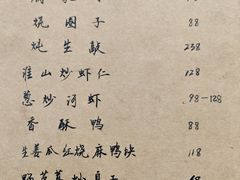 烧圈子 88
炖生敲 238
淮山炒虾仁 128
葱炒河虾 98-128
香酥鸭 88
生姜瓜红烧麻鸭块 118